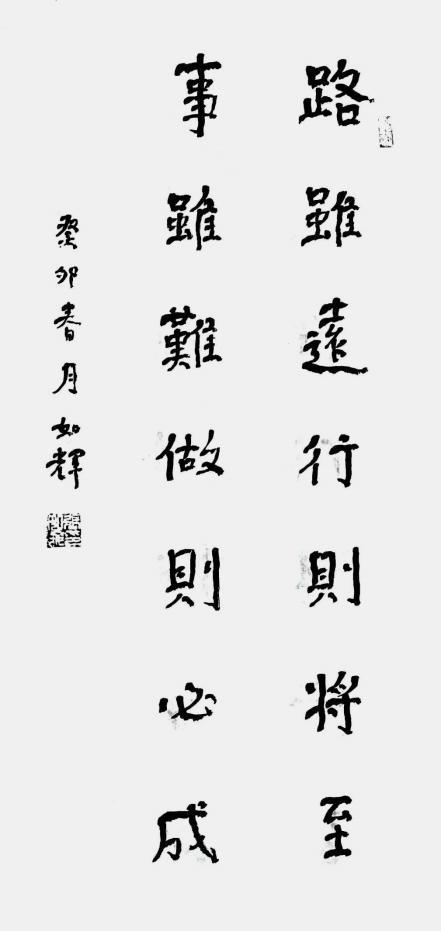 路雖遠行則将至
事雖難做則必成
癸卯春月如輝